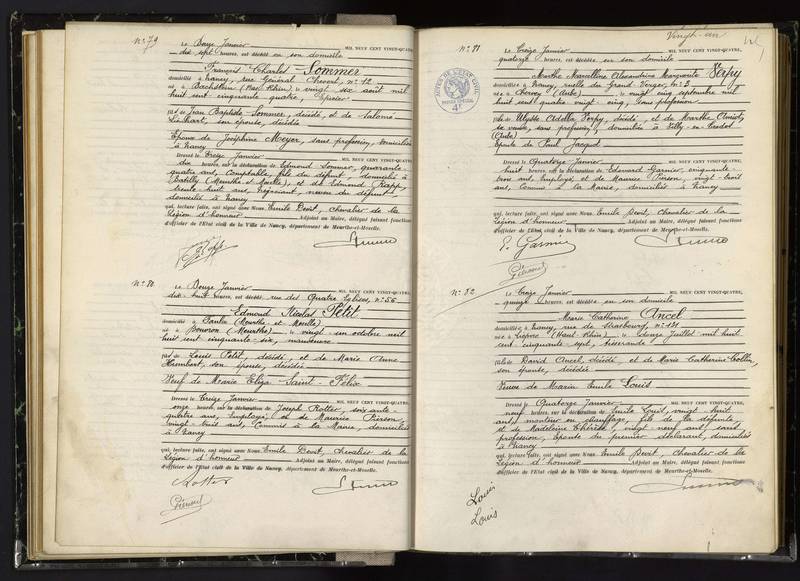 N° 79
Le Douze Janvier MIL NEUF CENT VINGT-QUATRE,
dix sept heures, est décédé en son domicile
François Charles Sommer
domicilié à Nancy, rue Général Chevert, n° 12
né à (Bas Rhin) le vingt six août mil
huit cent cinquante quatre,
fils de Jean Baptiste Sommer, décédé, et de Salomé
son épouse, décédée
Epoux de Joséphine Meyer, sans profession, domiciliée
à Nancy
Dressé le Treize Janvier MIL NEUF CENT VINGT-QUATRE,
dix heures, sur la déclaration de Edmond Sommer, quarante
quatre ans, Comptable, fils du défunt, domicilié à
(Meurthe et Moselle), et de Edmond
trente huit ans, Négociant, neveu du défunt,
domicilié à Nancy
qui, lecture faite, ont signé avec Nous Emile Devit, chevalier de la
Légion d'honneur Adjoint au Maire, délégué faisant fonctions
d'officier de l'Etat civil de la Ville de Nancy, département de Meurthe-et-Moselle.
N° 80
Le Douze Janvier MIL NEUF CENT VINGT-QUATRE,
dix huit heures, est décédé rue des Quatre Eglises, n° 56
Edmond Nicolas Petit
domicilié à (Meurthe et Moselle)
né à Bouvron (Meurthe) le vingt un octobre mil
huit cent cinquante six, manœuvre
fils de Louis Petit, décédé, et de Marie Anne
Humbert, son épouse, décédée
Veuf de Marie Eliza Saint-Félix
Dressé le Treize Janvier MIL NEUF CENT VINGT-QUATRE,
onze heures, sur la déclaration de Joseph Rotter, soixante
quatre ans, Employé, et de Maurice Pierson,
vingt huit ans, Commis à la Mairie, domiciliés
à Nancy
qui, lecture faite, ont signé avec Nous Emile Devit, Chevalier de la
Légion d'honneur Adjoint au Maire, délégué faisant fonctions
d'officier de l'Etat civil de la Ville de Nancy, département de Meurthe-et-Moselle.
Rotter
Vingt-un
N° 81
Le Treize Janvier MIL NEUF CENT VINGT-QUATRE,
quatorze heures, est décédée en son domicile
Marthe Marcelline Alexandrine Marguerite Verpy
domiciliée à Nancy, ruelle du Grand Verger, n° 3
née à Chervey (Aube) le vingt cinq septembre mil
huit cent quatre vingt cinq, sans profession
fille de Ulysse Adella Verpy, décédé, et de Marthe
sa veuve, sans profession, domiciliée à
(Aube)
Epouse de Paul Jacquot
Dressé le Quatorze Janvier MIL NEUF CENT VINGT-QUATRE,
huit heures, sur la déclaration de Edouard Garnier, cinquante
trois ans, Employé, et de Maurice Pierson, vingt huit
ans, Commis à la Mairie, domiciliés à Nancy
qui, lecture faite, ont signé avec Nous Emile Devit, Chevalier de la
Légion d'honneur Adjoint au Maire, délégué faisant fonctions
d'officier de l'Etat civil de la Ville de Nancy, département de Meurthe-et-Moselle.
E. Garnier
N° 82
Le Treize Janvier MIL NEUF CENT VINGT-QUATRE,
quinze heures, est décédée en son domicile
Marie Catherine Ancel
domiciliée à Nancy, rue de Strasbourg, n° 131
née à Lièpvre (Haut Rhin) le Juillet mil huit
cent cinquante sept, tisserande
fille de David Ancel, décédé, et de Marie Catherine Collin,
son épouse, décédée
Veuve de Marin Emile Louis
Dressé le Quatorze Janvier MIL NEUF CENT VINGT-QUATRE,
neuf heures, sur la déclaration de Emile Louis, vingt huit
ans, monteur en chauffage, fils de la défunte,
et de Madeleine Thérèse, vingt neuf ans, sans
profession, Epouse du premier déclarant, domiciliés
à Nancy
qui, lecture faite, ont signé avec Nous Emile Devit, Chevalier de la
Légion d'honneur Adjoint au Maire, délégué faisant fonctions
d'officier de l'Etat civil de la Ville de Nancy, département de Meurthe-et-Moselle.
Louis
Louis